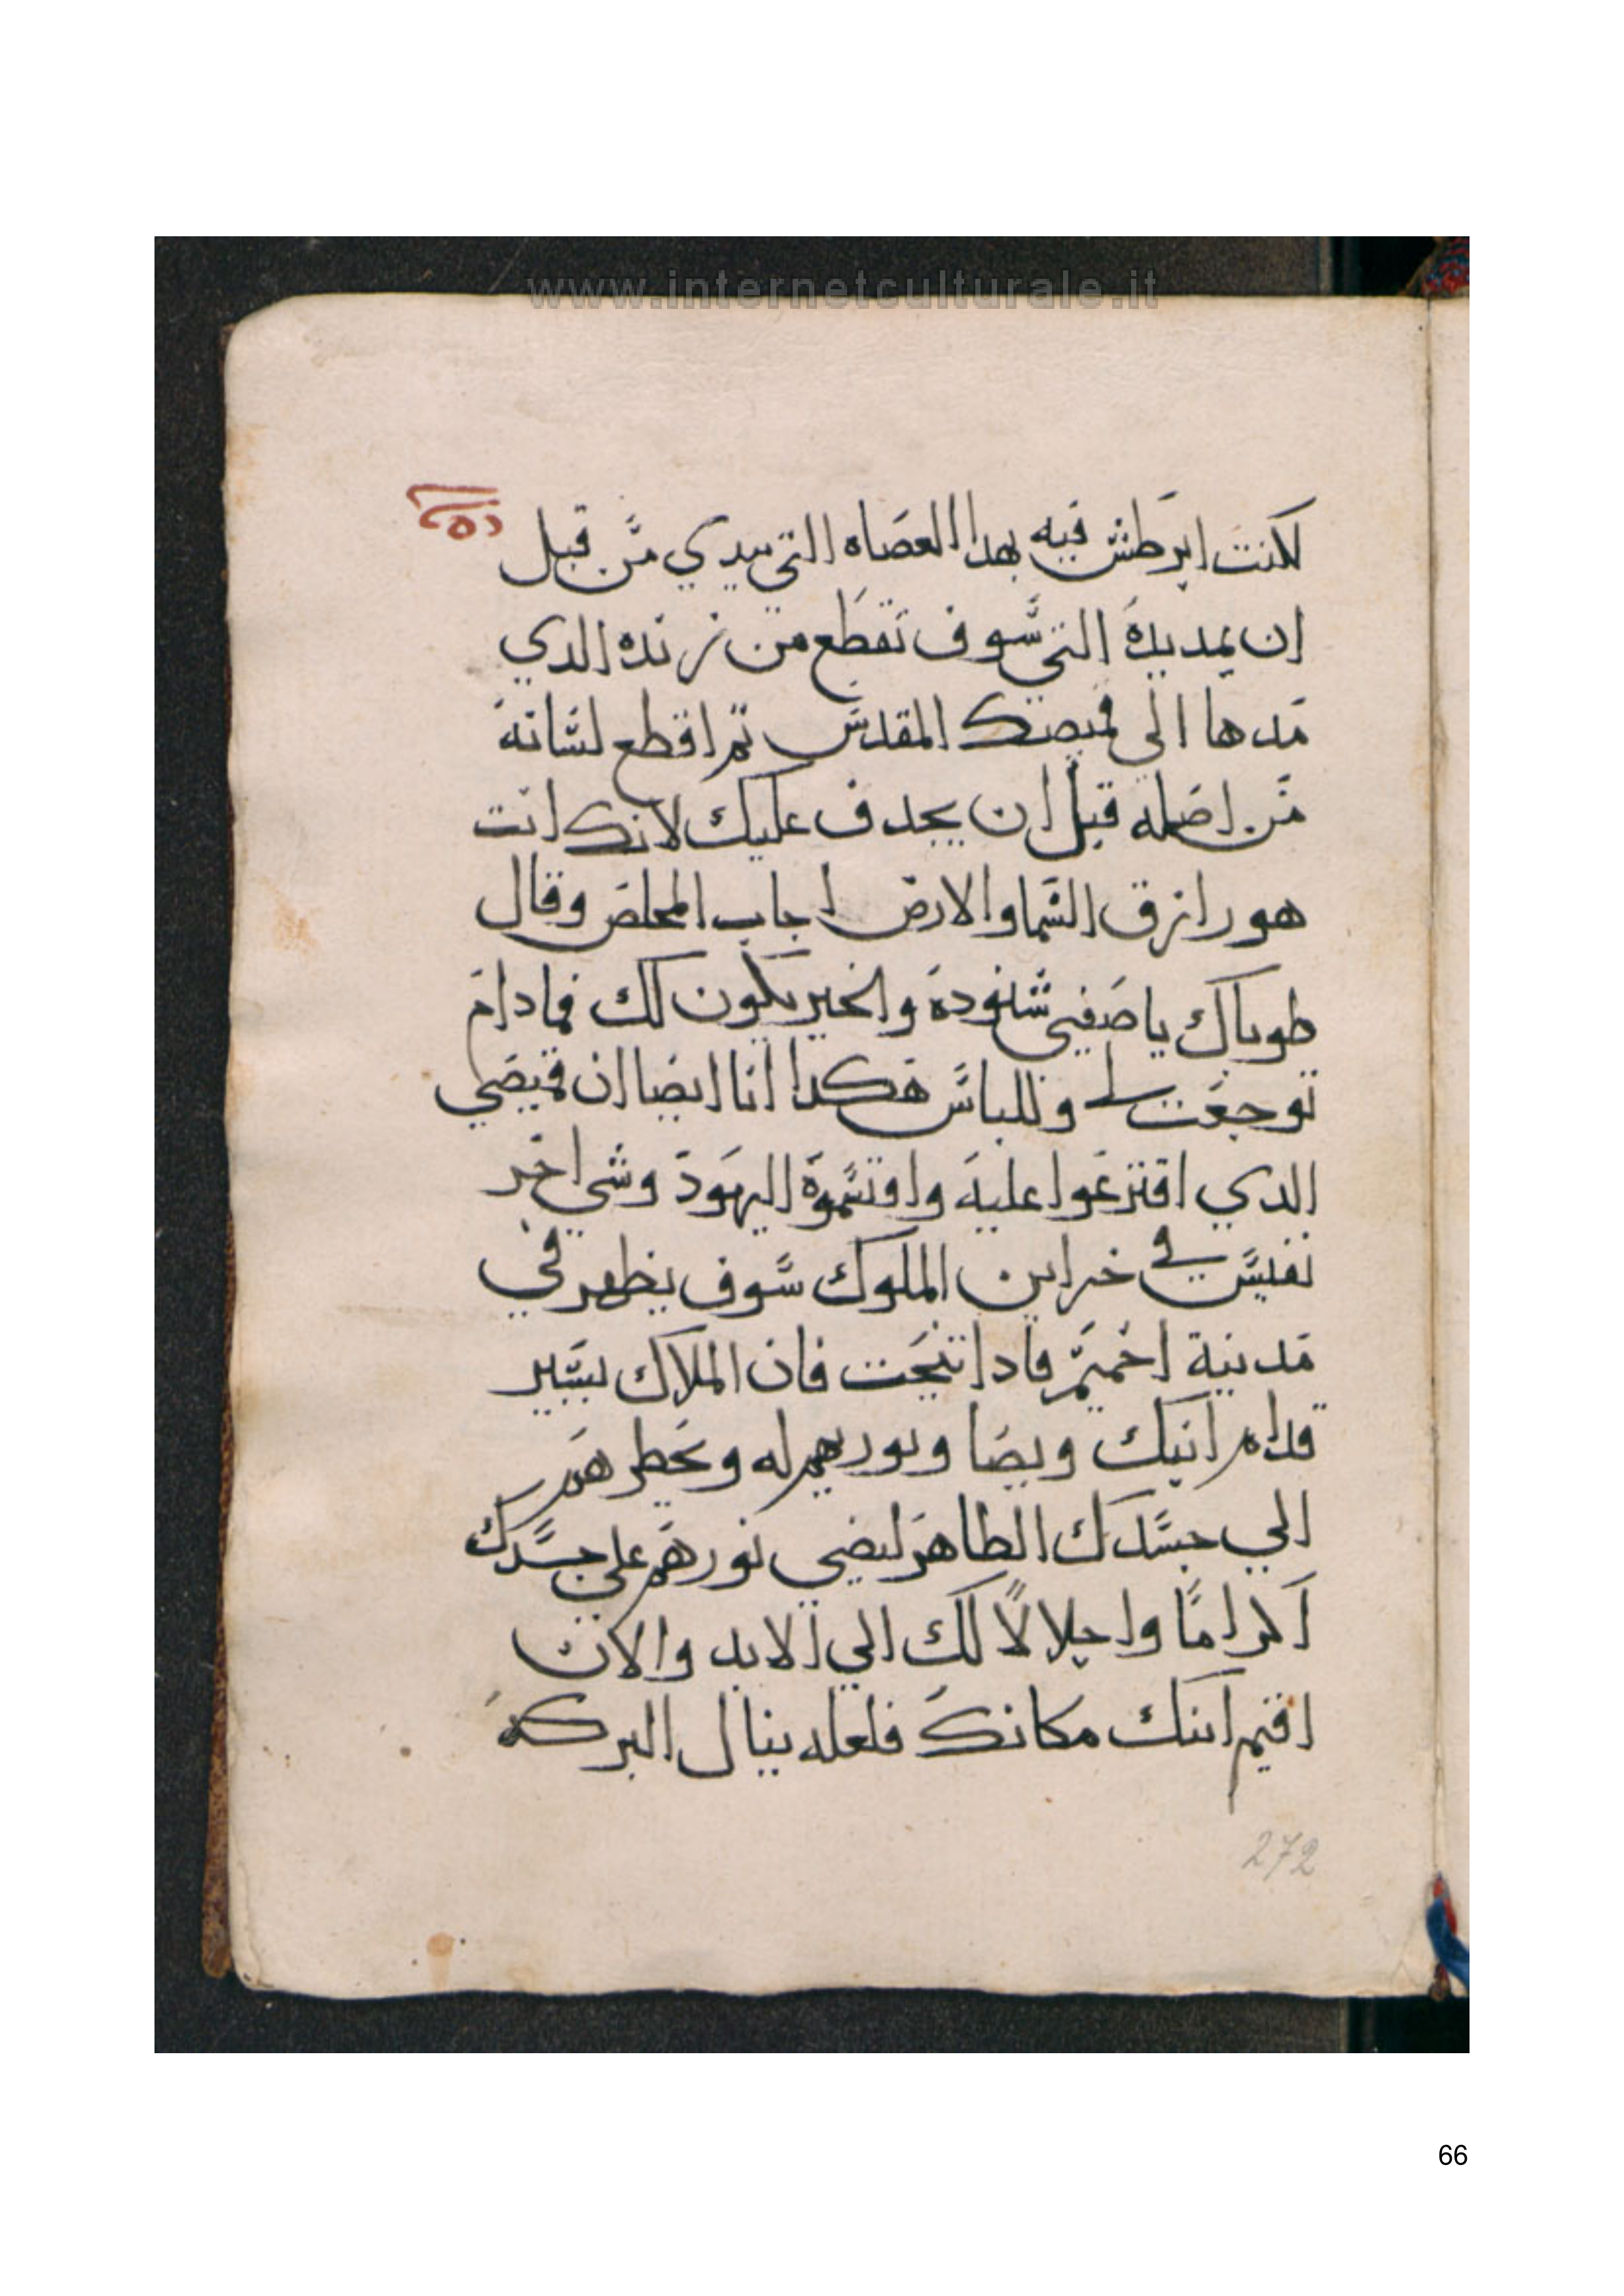 www.internetculturale.it
لكنت ابرطش فيه بهدا العصاه التي بيدي من قبل
ان يمد يده التي سوف تقطع من زنده الدي
مدها الى قميصك المقدس تم اقطع لسانه
من اصله قبل ان يجدف عليك لانك انت
هو رازق السما والارض اجاب المخلص وقال
طوباك يا صفيي شنوده والخير يكون لك فمادام
توجعت وللباس هكدا انا ايضا ان قميصي
الدي اقترعوا عليه واقتسموه اليهود وشي اخر
نفيس في خزاين الملوك سوف يظهر في
مدينة اخميم فادا تنيحت فان الملاك يسير
قدام ابنك ويضا ونوريهم له ويحطهم
الي جسدك الطاهر ليضي نورهم علي جسدك
اكراما واجلالا لك الي الابد والان
اقيم ابنك مكانك فلعله ينال البركه
272
66